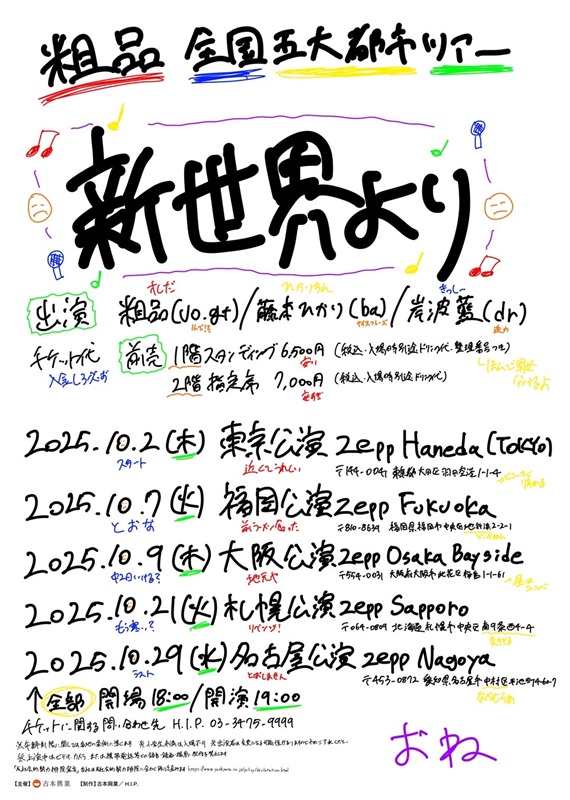 粗品 全国五大都市ツアー
新世界より
そしな ひかりさん きっしー
出演 粗品(vo.gt)/藤本ひかり(ba)/岸波藍(dr)
チケット代 前売 1階スタンディング 6,500円 (税込・入場時別途ドリンク代・整理番号つき)
安い
2階指定席 7,000円 (税込・入場時別途ドリンク代)
2025.10.2(木) 東京公演 Zepp Haneda(TOKYO)
スタート 近くてうれしい 〒144-0041 東京都大田区羽田空港1-1-4
2025.10.7(火) 福岡公演 Zepp Fukuoka
〒810-8639 福岡県福岡市中央区地行浜2-2-1
2025.10.9(木) 大阪公演 Zepp Osaka Bayside
中2日いける? 地元や 〒554-0031 大阪府大阪市此花区桜島1-1-61
2025.10.21(火) 札幌公演 Zepp Sapporo
もう寒い? リベンジ! 〒064-0809 北海道札幌市中央区南9条西4-4
2025.10.29(水) 名古屋公演 Zepp Nagoya
ラスト 〒453-0872 愛知県名古屋市中村区平池町4-60-7
↑全部 開場 18:00/開演 19:00
チケットに関する問い合わせ先 H.I.P. 03-3475-9999
おね
【主催】吉本興業 【制作】吉本興業/H.I.P.